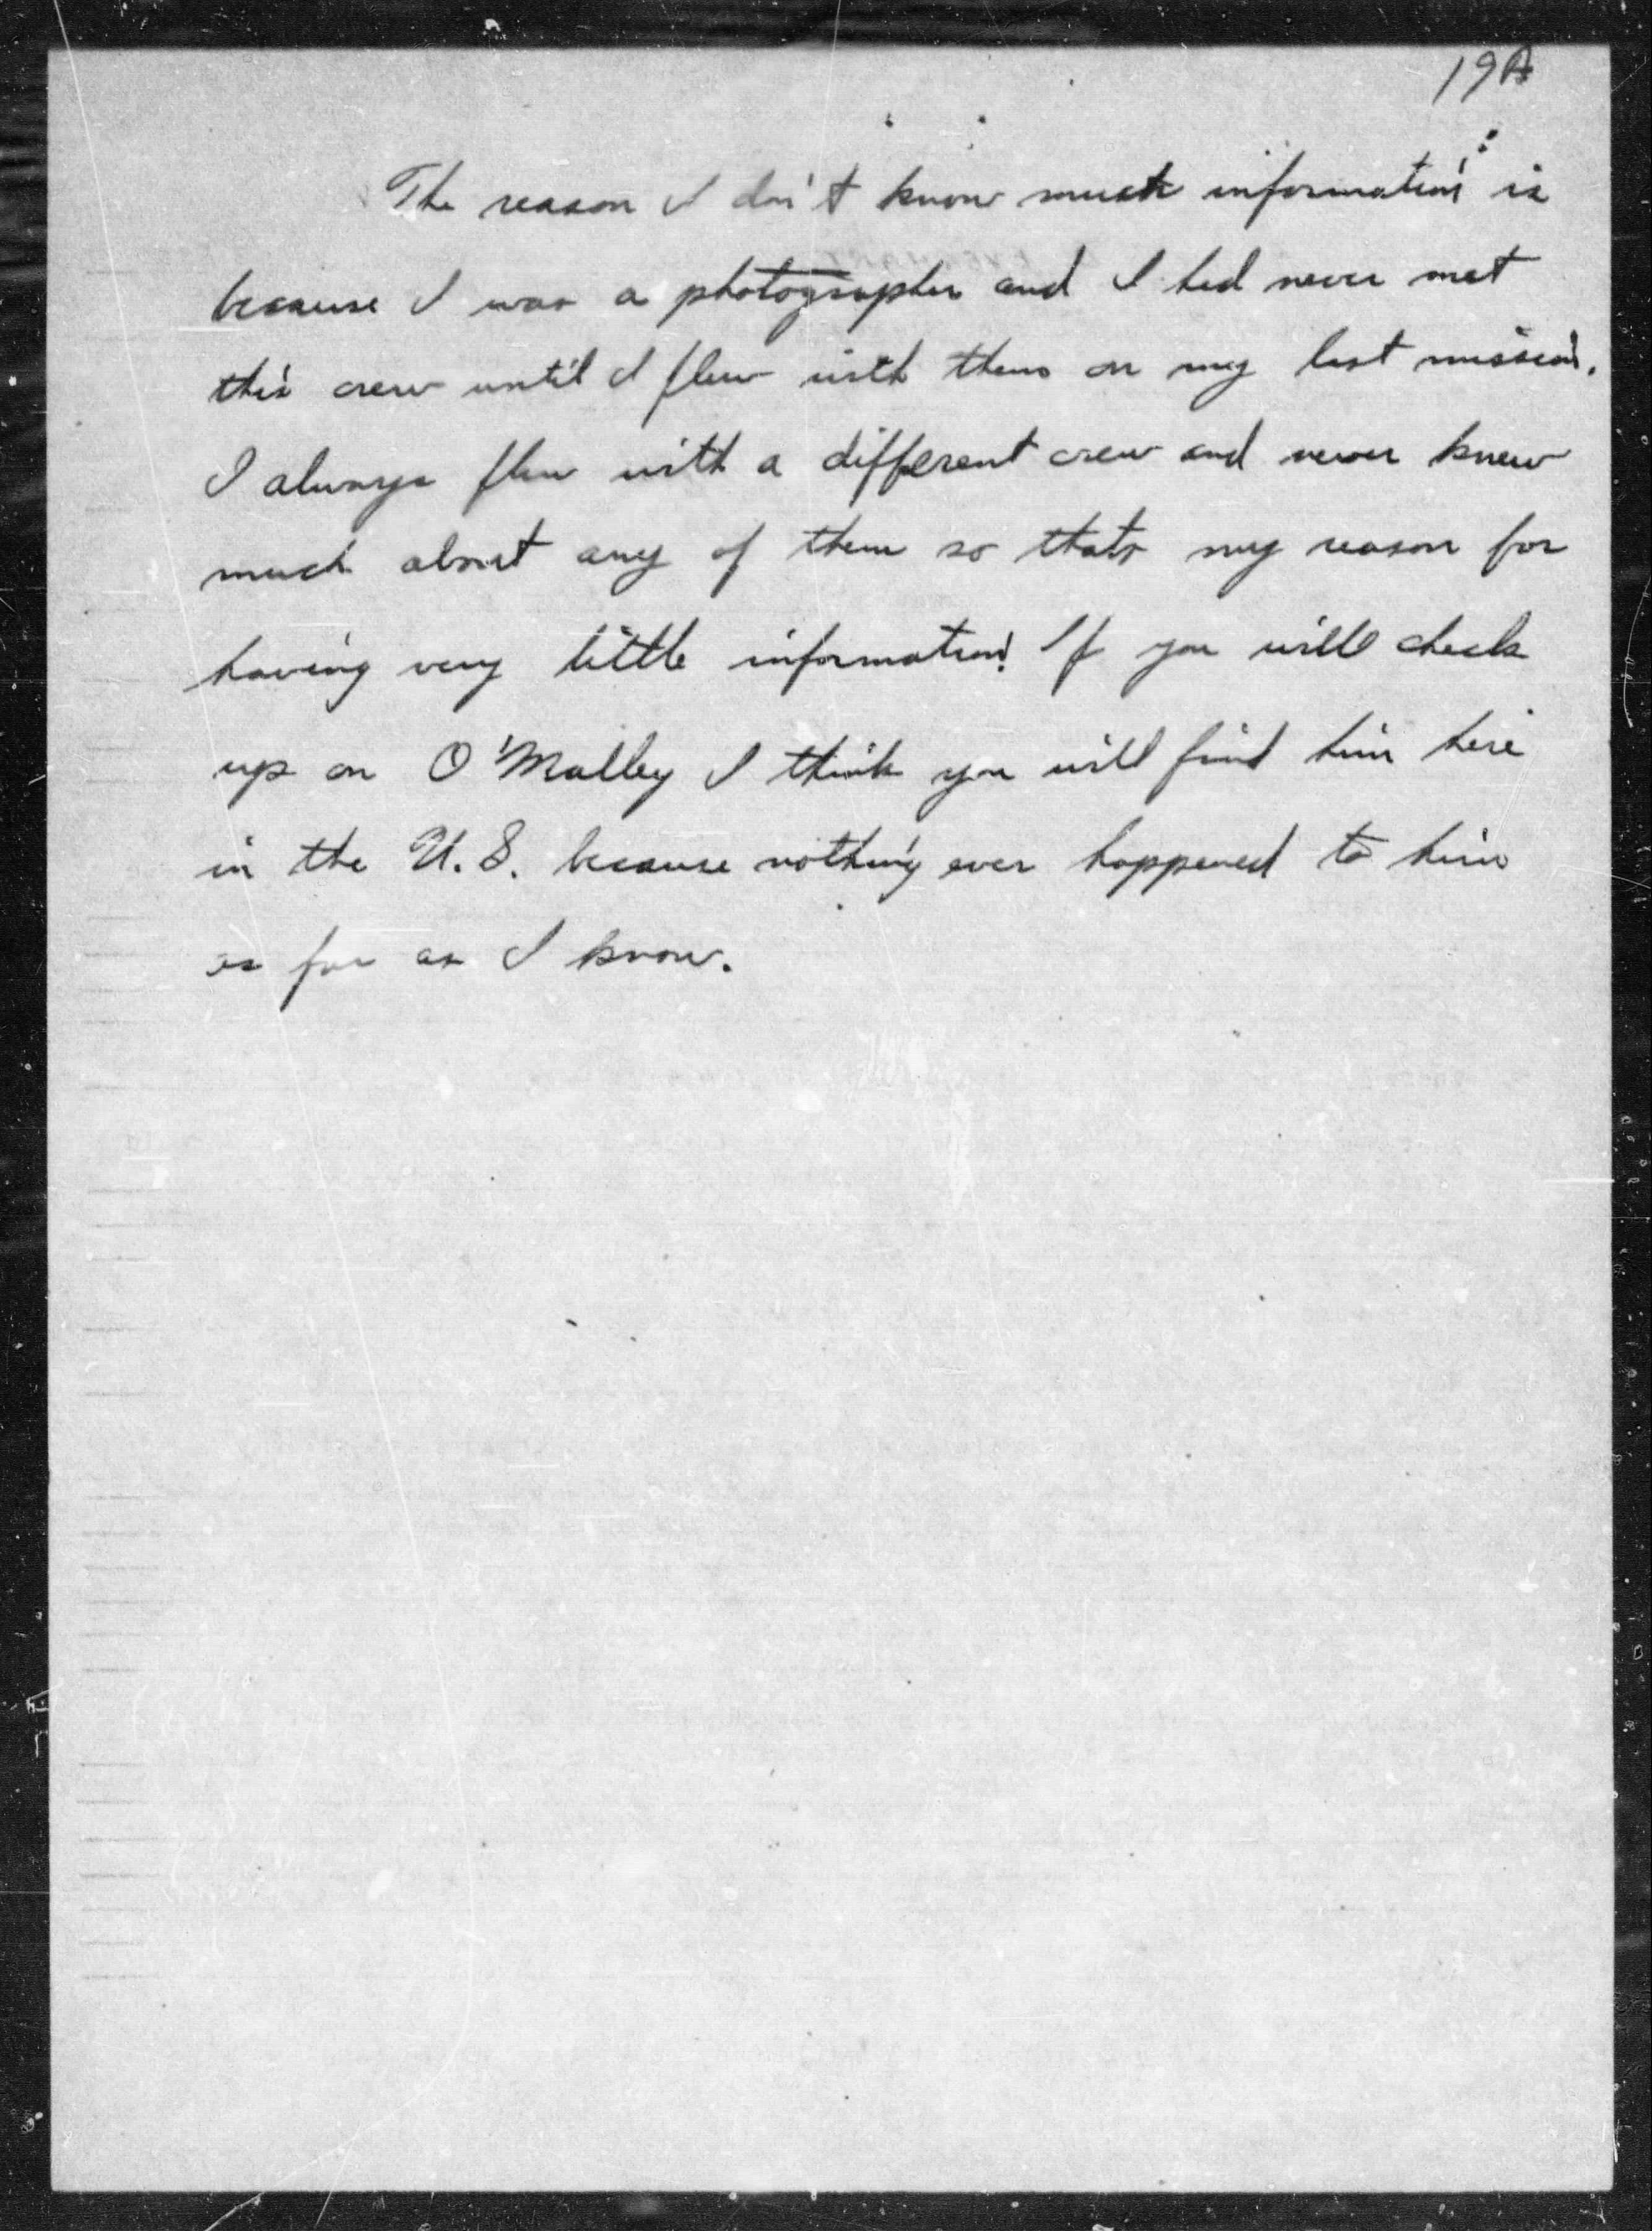 19A
The reason I don't know much information is
because I was a photographer and I had never met
this crew until I flew with them on my last mission.
I always flew with a different crew and never knew
much about any of them so thats my reason for
having very little information. If you will check
up on O'Malley I think you will find him here
in the U.S. because nothing ever happened to him
as far as I know.